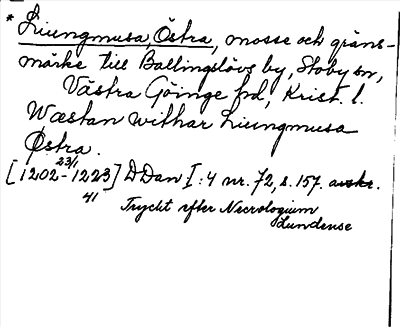 * Liungmusa, Östra, mosse och gräns-
märke till Ballingslövs by, Stoby sn,
Västra Göinge hd, Krist. l.
Wæstan withar Liungmusa
Østra.
[1202-23/1 1223] DDan I:4 nr. 72, s. 157. avskr.
41
Tryckt efter Necrologium
Lundense